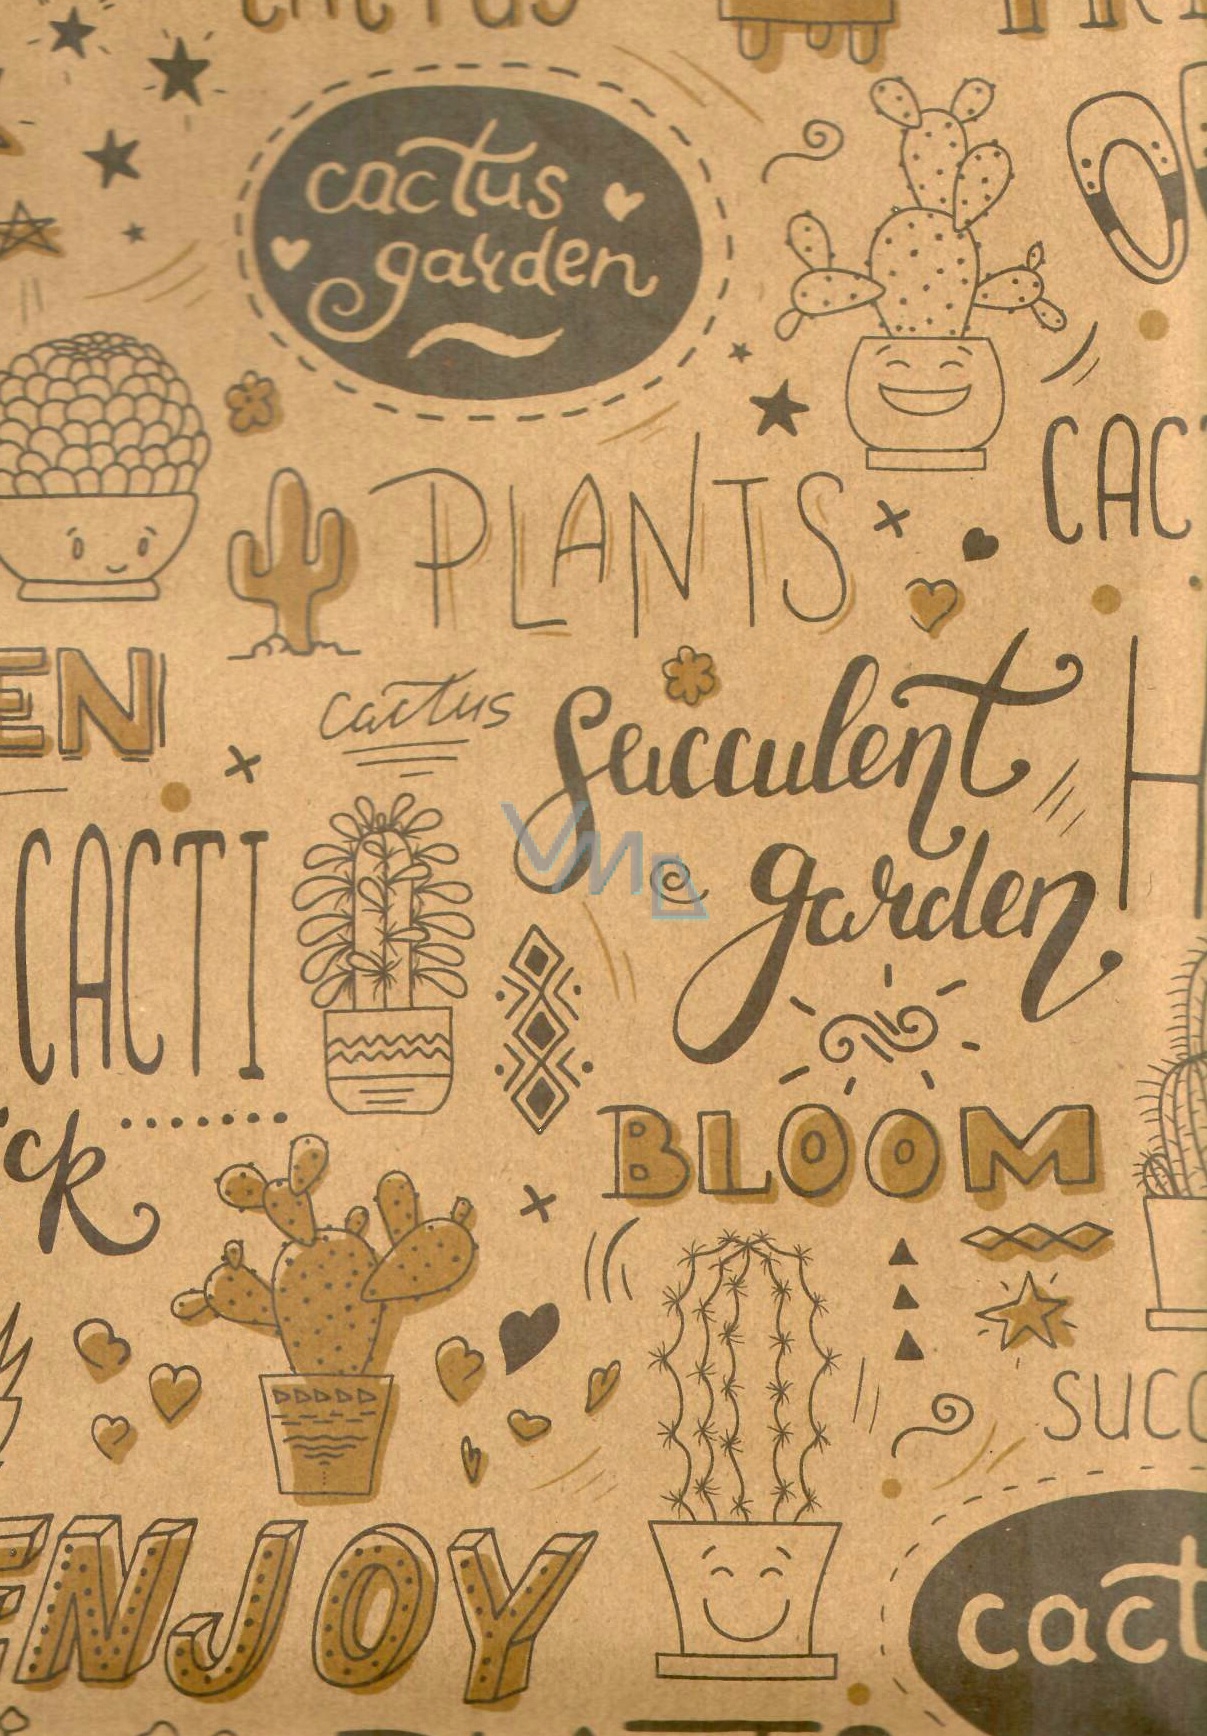 cactus
garden
CACT
PLANTS
EN
cactus
Succulent
garden
CACTI
ick
BLOOM
SUCC
ENJOY
cact
VMD